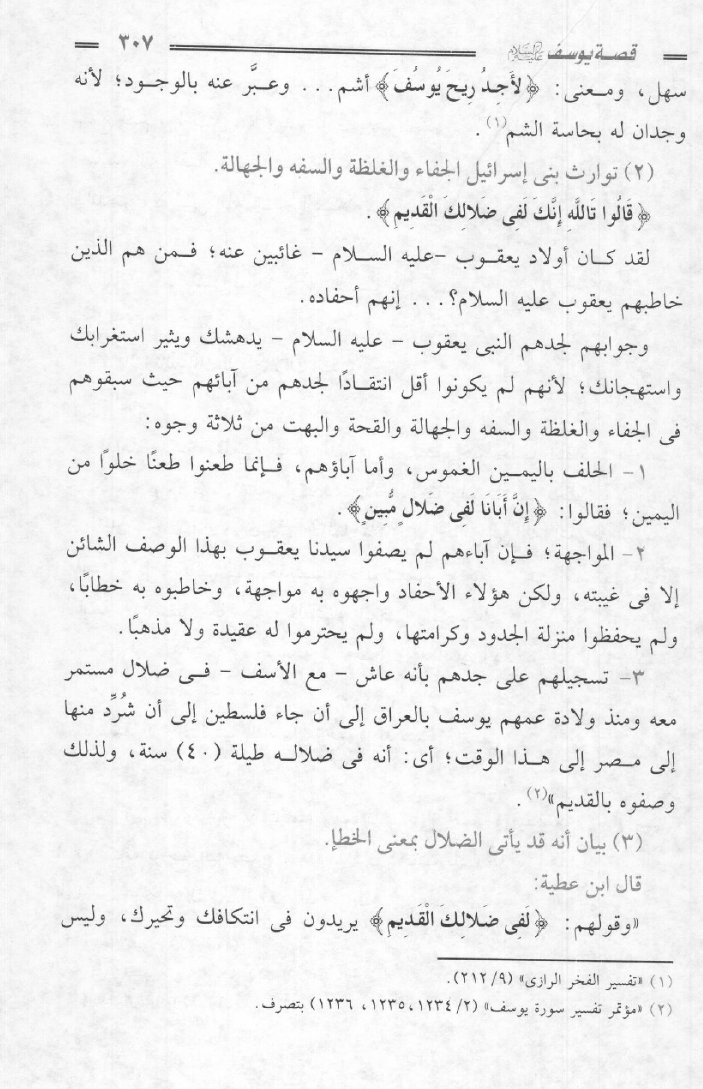 قصة يوسف عليه السلام ٣٠٧
سهل، ومعنى: ﴿لأَجِدُ رِيحَ يُوسُفَ﴾ أشم... وعبَّر عنه بالوجود؛ لأنه
وجدان له بحاسة الشم(١).
(٢) توارث بنى إسرائيل الجفاء والغلظة والسفه والجهالة.
﴿قَالُوا تَاللَّهِ إِنَّكَ لَفِى ضَلالِكَ الْقَدِيمِ﴾.
لقد كان أولاد يعقوب -عليه السلام - غائبين عنه؛ فمن هم الذين
خاطبهم يعقوب عليه السلام؟... إنهم أحفاده.
وجوابهم لجدهم النبى يعقوب - عليه السلام - يدهشك ويثير استغرابك
واستهجانك؛ لأنهم لم يكونوا أقل انتقادًا لجدهم من آبائهم حيث سبقوهم
فى الجفاء والغلظة والسفه والجهالة والقحة والبهت من ثلاثة وجوه:
١- الحلف باليمين الغموس، وأما آباؤهم، فإنما طعنوا طعنًا خلوًا من
اليمين؛ فقالوا: ﴿إِنَّ أَبَانَا لَفِى ضَلالٍ مُّبِينٍ﴾.
٢- المواجهة؛ فإن آباءهم لم يصفوا سيدنا يعقوب بهذا الوصف الشائن
إلا فى غيبته، ولكن هؤلاء الأحفاد واجهوه به مواجهة، وخاطبوه به خطابًا،
ولم يحفظوا منزلة الجدود وكرامتها، ولم يحترموا له عقيدة ولا مذهبًا.
٣- تسجيلهم على جدهم بأنه عاش - مع الأسف - فى ضلال مستمر
معه ومنذ ولادة عمهم يوسف بالعراق إلى أن جاء فلسطين إلى أن شُرِّد منها
إلى مصر إلى هذا الوقت؛ أى: أنه فى ضلاله طيلة (٤٠) سنة، ولذلك
وصفوه بالقديم»(٢).
(٣) بيان أنه قد يأتى الضلال بمعنى الخطإ.
قال ابن عطية:
«وقولهم: ﴿لَفِى ضَلالِكَ الْقَدِيمِ﴾ يريدون فى انتكافك وتحيرك، وليس
(١) «تفسير الفخر الرازى» (٢١٢/٩).
(٢) «مؤتمر تفسير سورة يوسف» (١٢٣٤/٢، ١٢٣٥، ١٢٣٦) بتصرف.